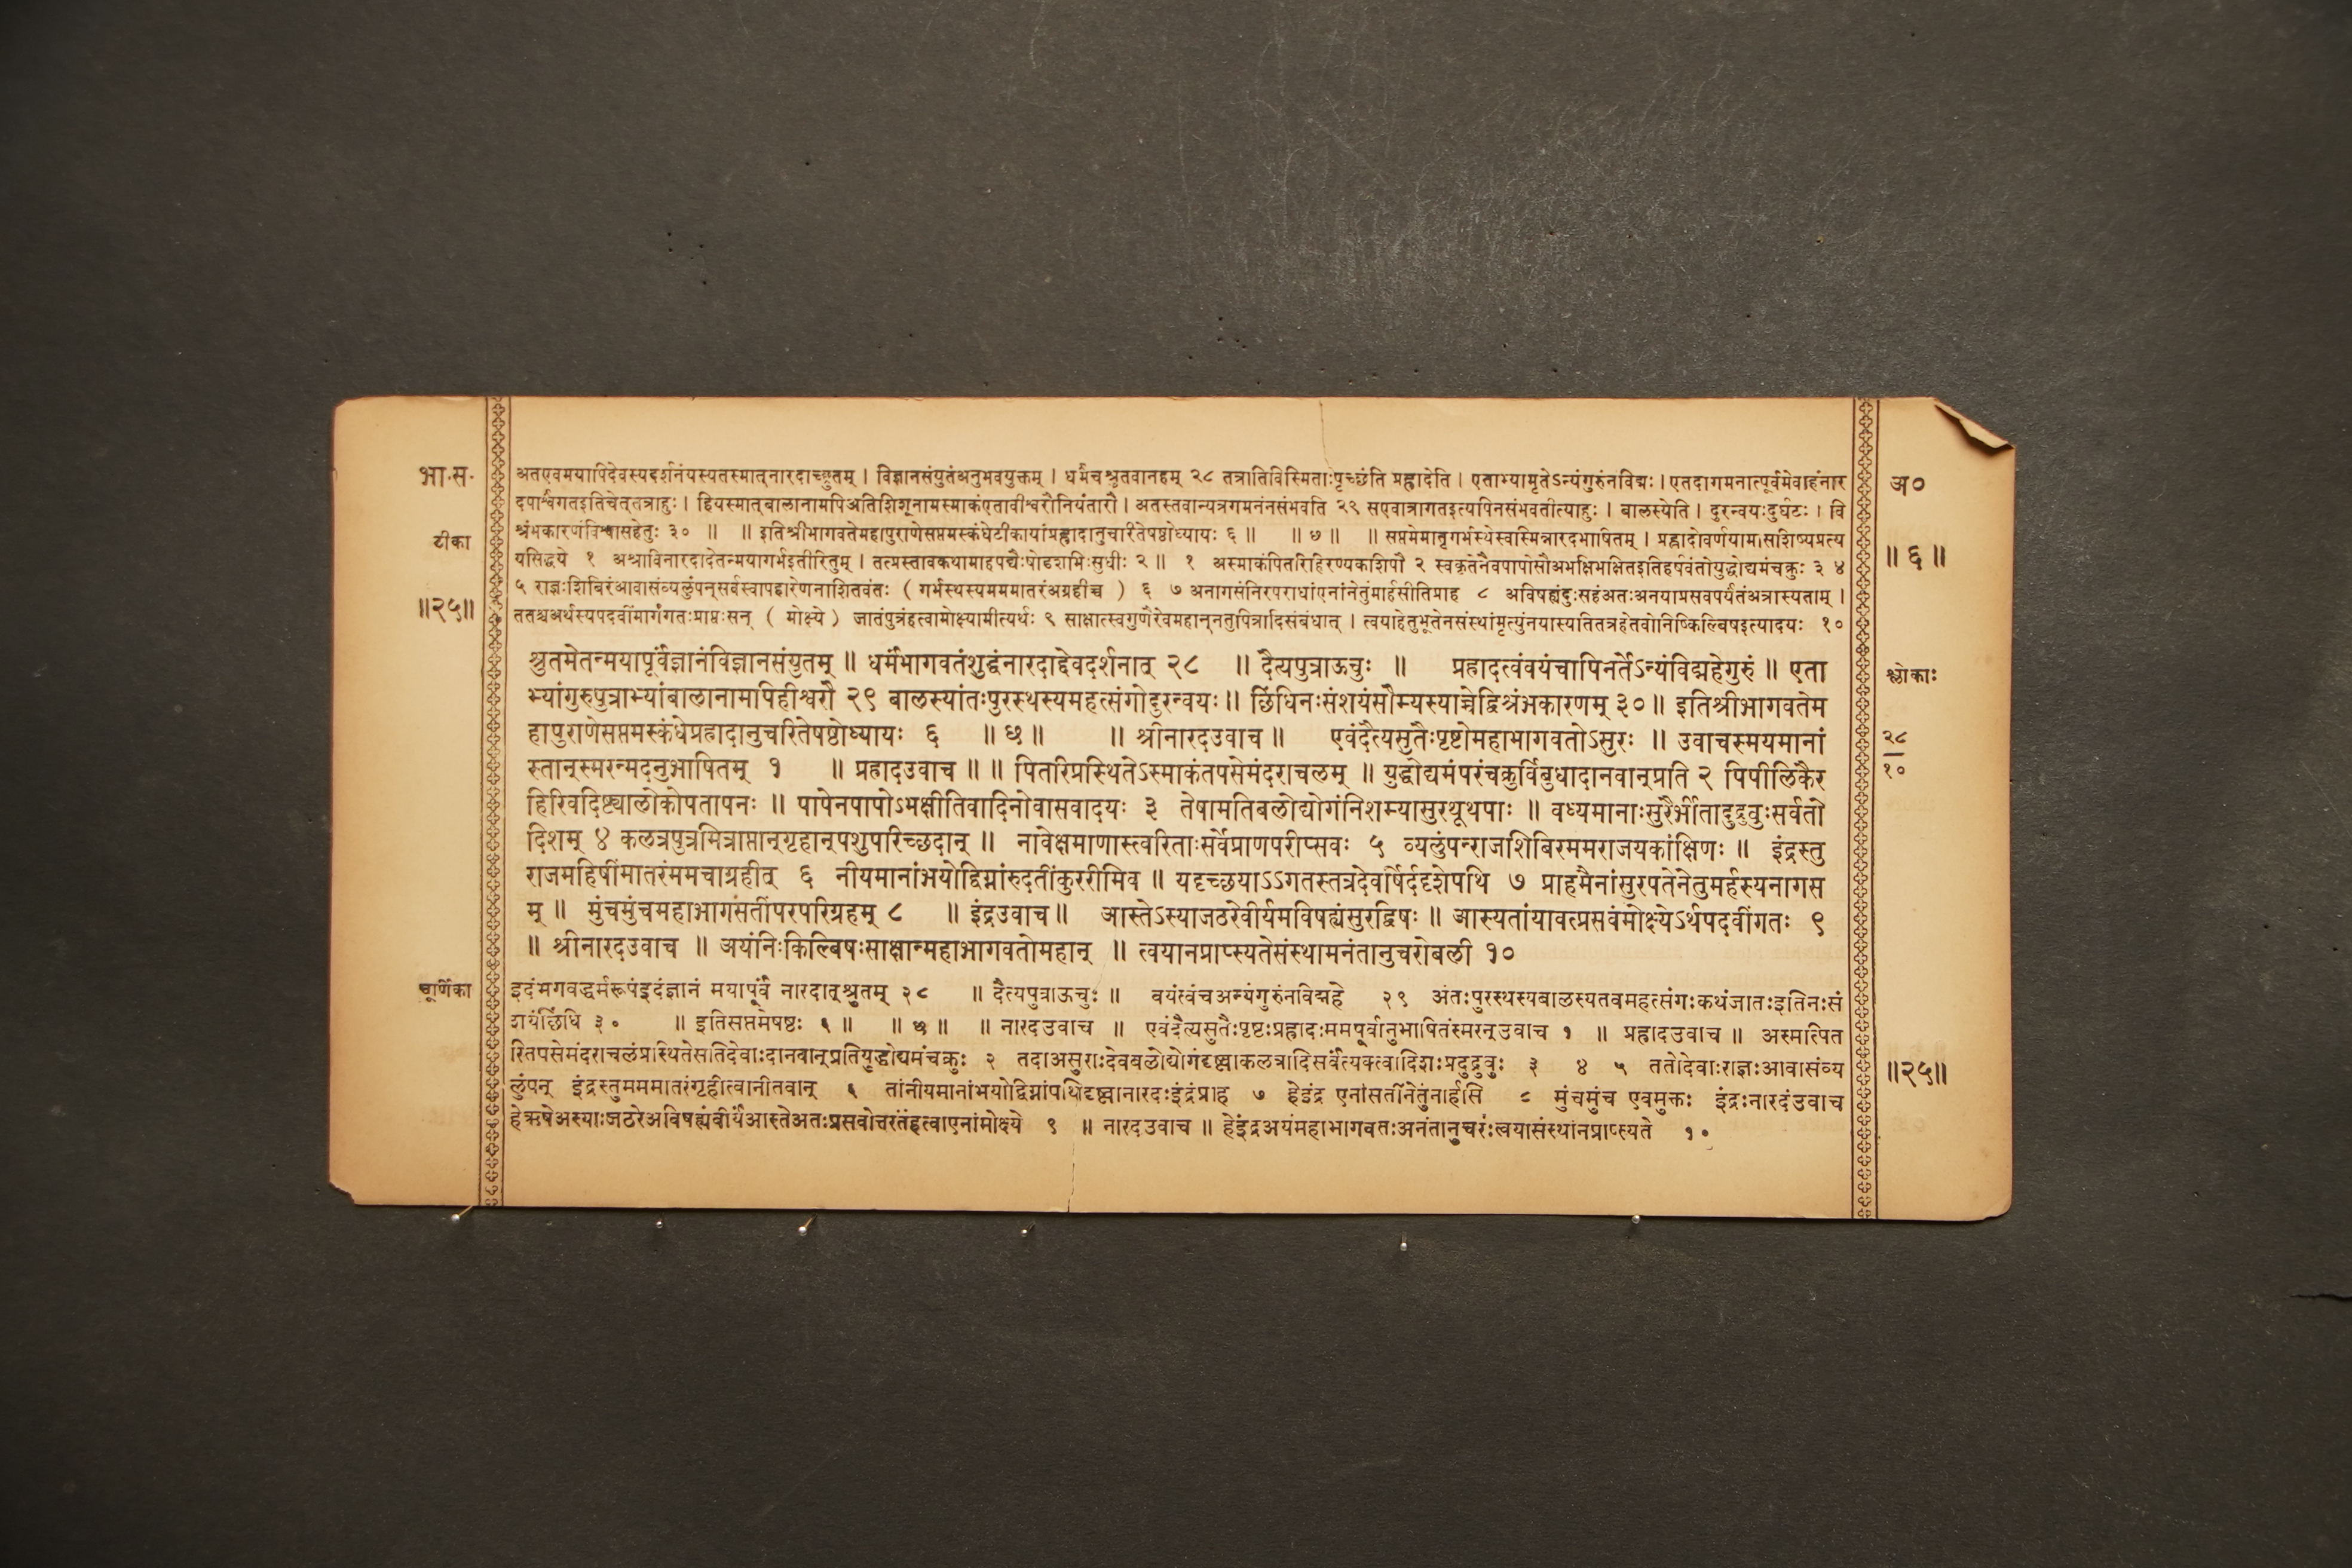 भा.स.
टीका
॥२५॥
अतएवमयापिदेवस्यदर्शनंयस्यतस्मात्नारदाच्छ्रुतम् । विज्ञानसंयुतंअनुभवयुक्तम् । धर्मंचश्रुतवानहम् २८ तत्रातिविस्मिताःपृच्छंति प्रह्लादेति । एताभ्यामृतेऽन्यंगुरुंनविद्मः । एतदागमनात्पूर्वमेवाहंनार
दपार्श्वंगतइतिचेत्तत्राहुः । हियस्मात्बालानामपिअतिशिशूनामस्माकंएतावीश्वरौनियंतारौ । अतस्तवान्यत्रगमनंनसंभवति २९ सएवात्रागतइत्यपिनसंभवतीत्याहुः । बालस्येति । दुरन्वयःदुर्घटः । वि
श्रंभकारणंविश्वासहेतुः ३० ॥ ॥ इतिश्रीभागवतेमहापुराणेसप्तमस्कंधेटीकायांप्रह्लादानुचरितेषष्ठोध्यायः ६ ॥ ॥ ७ ॥ ॥ सप्तमेमातृगर्भस्थेस्वस्मिन्नारदभाषितम् । प्रह्लादोवर्णयामासशिष्यप्रत्य
यसिद्धये १ अश्राविनारदादेतन्मयागर्भइतीरितुम् । तत्प्रस्तावकथामाहपद्यैःषोडशभिःसुधीः २ ॥ १ अस्माकंपितरिहिरण्यकशिपौ २ स्वकृतेनैवपापोसौअभक्षिभक्षितइतिहर्षवंतोयुद्धोद्यमंचक्रुः ३ ४
५ राज्ञःशिबिरंआवासंव्यलुंपन्सर्वस्वापहारेणनाशितवंतः ( गर्भस्थस्यमममातरंअग्रहीच्च ) ६ ७ अनागसंनिरपराधांएनांनेतुंमार्हसीतिप्राह ८ अविषह्यंदुःसहंअतःअनयाप्रसवपर्यंतंअत्रास्यताम् ।
ततश्चअर्थस्यपदवींमार्गंगतःप्राप्तःसन् ( मोक्ष्ये ) जातंपुत्रंहत्वामोक्ष्यामीत्यर्थः ९ साक्षात्स्वगुणैरेवमहान्नतुपित्रादिसंबंधात् । त्वयाहेतुभूतेनसंस्थांमृत्युंनयास्यतितत्रहेतवोनिष्किल्बिषइत्यादयः १०
श्रुतमेतन्मयापूर्वंज्ञानंविज्ञानसंयुतम् ॥ धर्मंभागवतंशुद्धंनारदाद्देवदर्शनात् २८ ॥ दैत्यपुत्राऊचुः ॥ प्रह्रादत्वंवयंचापिनर्तेऽन्यंविद्महेगुरुं ॥ एता
भ्यांगुरुपुत्राभ्यांबालानामापिहीश्वरौ २९ बालस्यांतःपुरस्थस्यमहत्संगोदुरन्वयः ॥ छिंधिनःसंशयंसौम्यस्याच्चेद्विश्रंभकारणम् ३० ॥ इतिश्रीभागवतेम
हापुराणेसप्तमस्कंधेप्रह्रादानुचरितेषष्ठोध्यायः ६ ॥ छ ॥ ॥ श्रीनारदउवाच ॥ एवंदैत्यसुतैःपृष्टोमहाभागवतोऽसुरः ॥ उवाचस्मयमानां
स्तान्स्मरन्मदनुभाषितम् १ ॥ प्रह्रादउवाच ॥ ॥ पितरिप्रस्थितेऽस्माकंतपसेमंदराचलम् ॥ युद्धोद्यमंपरंचक्रुर्विबुधादानवान्प्रति २ पिपीलिकैर
हिरिवदिष्ट्यालोकोपतापनः ॥ पापेनपापोऽभक्षीतिवादिनोवासवादयः ३ तेषामतिबलोद्योगंनिशम्यासुरयूथपाः ॥ वध्यमानाःसुरैर्भीतादुद्रुवुःसर्वतो
दिशम् ४ कलत्रपुत्रमित्राप्तान्गृहान्पशुपरिच्छदान् ॥ नावेक्षमाणास्त्वरिताःसर्वेप्राणपरीप्सवः ५ व्यलुंपन्राजशिबिरममराजयकांक्षिणः ॥ इंद्रस्तु
राजमहिषींमातरंममचाग्रहीत् ६ नीयमानांभयोद्विग्नांरुदतींकुररीमिव ॥ यदृच्छयाऽऽगतस्तत्रदेवर्षिर्ददृशेपथि ७ प्राहमैनांसुरपतेनेतुमर्हस्यनागस
म् ॥ मुंचमुंचमहाभागसतींपरपरिग्रहम् ८ ॥ इंद्रउवाच ॥ आस्तेऽस्याजठरेवीर्यमविषह्यंसुरद्विषः ॥ आस्यतांयावत्प्रसवंमोक्ष्येऽर्थपदवींगतः ९
॥ श्रीनारदउवाच ॥ अयंनिःकिल्बिषःसाक्षान्महाभागवतोमहान् ॥ त्वयानप्राप्स्यतेसंस्थामनंतानुचरोबली १०
चूर्णिका
इदंभगवद्धर्मरूपंइदंज्ञानं मयापूर्वं नारदात्श्रुतम् २८ ॥ दैत्यपुत्राऊचुः ॥ वयंत्वंचअन्यंगुरुंनविद्महे २९ अंतःपुरस्थस्यबालस्यतवमहत्संगःकथंजातःइतिनःसं
शयंछिंधि ३० ॥ इतिसप्तमेषष्ठः ६ ॥ ॥ छ ॥ ॥ नारदउवाच ॥ एवंदैत्यसुतैःपृष्टःप्रह्रादःममपूर्वानुभाषितंस्मरन्उवाच १ ॥ प्रह्रादउवाच ॥ अस्मत्पित
रितपसेमंदराचलंप्रस्थितेसतिदेवाःदानवान्प्रतियुद्धोद्यमंचक्रुः २ तदाअसुराःदेवबलोद्योगंदृष्ट्वाकलत्रादिसर्वंत्यक्त्वादिशःप्रदुद्रुवुः ३ ४ ५ ततोदेवाःराज्ञःआवासंव्य
लुंपन् इंद्रस्तुमममातरंगृहीत्वानीतवान् ६ तांनीयमानांभयोद्विग्नांपथिदृष्ट्वानारदःइंद्रंप्राह ७ हेइंद्र एनांसतींनेतुंनार्हसि ८ मुंचमुंच एवमुक्तः इंद्रःनारदंउवाच
हेऋषेअस्याःजठरेअविषह्यंवीर्यंआस्तेअतःप्रसवोत्तरंतंहत्वाएनांमोक्ष्ये ९ ॥ नारदउवाच ॥ हेइंद्रअयंमहाभागवतःअनंतानुचरःत्वयासंस्थांनप्राप्स्यते १०
अ०
॥ ६ ॥
श्लोकाः
२८
१०
॥२५॥